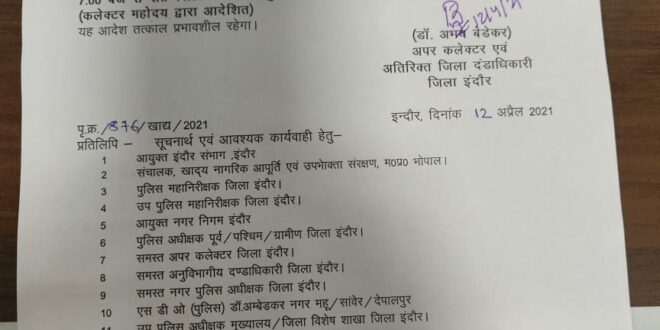 7.00 बजे
(कलेक्टर महोदय द्वारा आदेशित)
यह आदेश तत्काल प्रभावशील रहेगा।
(डॉ. अभय बेडेकर)
अपर कलेक्टर एवं
अतिरिक्त जिला दंडाधिकारी
जिला इंदौर
इन्दौर, दिनांक 12 अप्रैल 2021
पृ.क्र./376/खाद्य/2021
प्रतिलिपि – सूचनार्थ एवं आवश्यक कार्यवाही हेतु–
1 आयुक्त इंदौर संभाग ,इंदौर
2 संचालक, खाद्य नागरिक आपूर्ति एवं उपभोक्ता संरक्षण, म0प्र0 भोपाल।
3 पुलिस महानिरीक्षक जिला इंदौर।
4 उप पुलिस महानिरीक्षक जिला इंदौर।
5 आयुक्त नगर निगम इंदौर
6 पुलिस अधीक्षक पूर्व/पश्चिम/ग्रामीण जिला इंदौर।
7 समस्त अपर कलेक्टर जिला इंदौर।
8 समस्त अनुविभागीय दण्डाधिकारी जिला इंदौर।
9 समस्त नगर पुलिस अधीक्षक जिला इंदौर।
10 एस डी ओ (पुलिस) डॉ.अम्बेडकर नगर महू/सांवेर/देपालपुर
11 उप पुलिस अधीक्षक मुख्यालय/जिला विशेष शाखा जिला इंदौर।